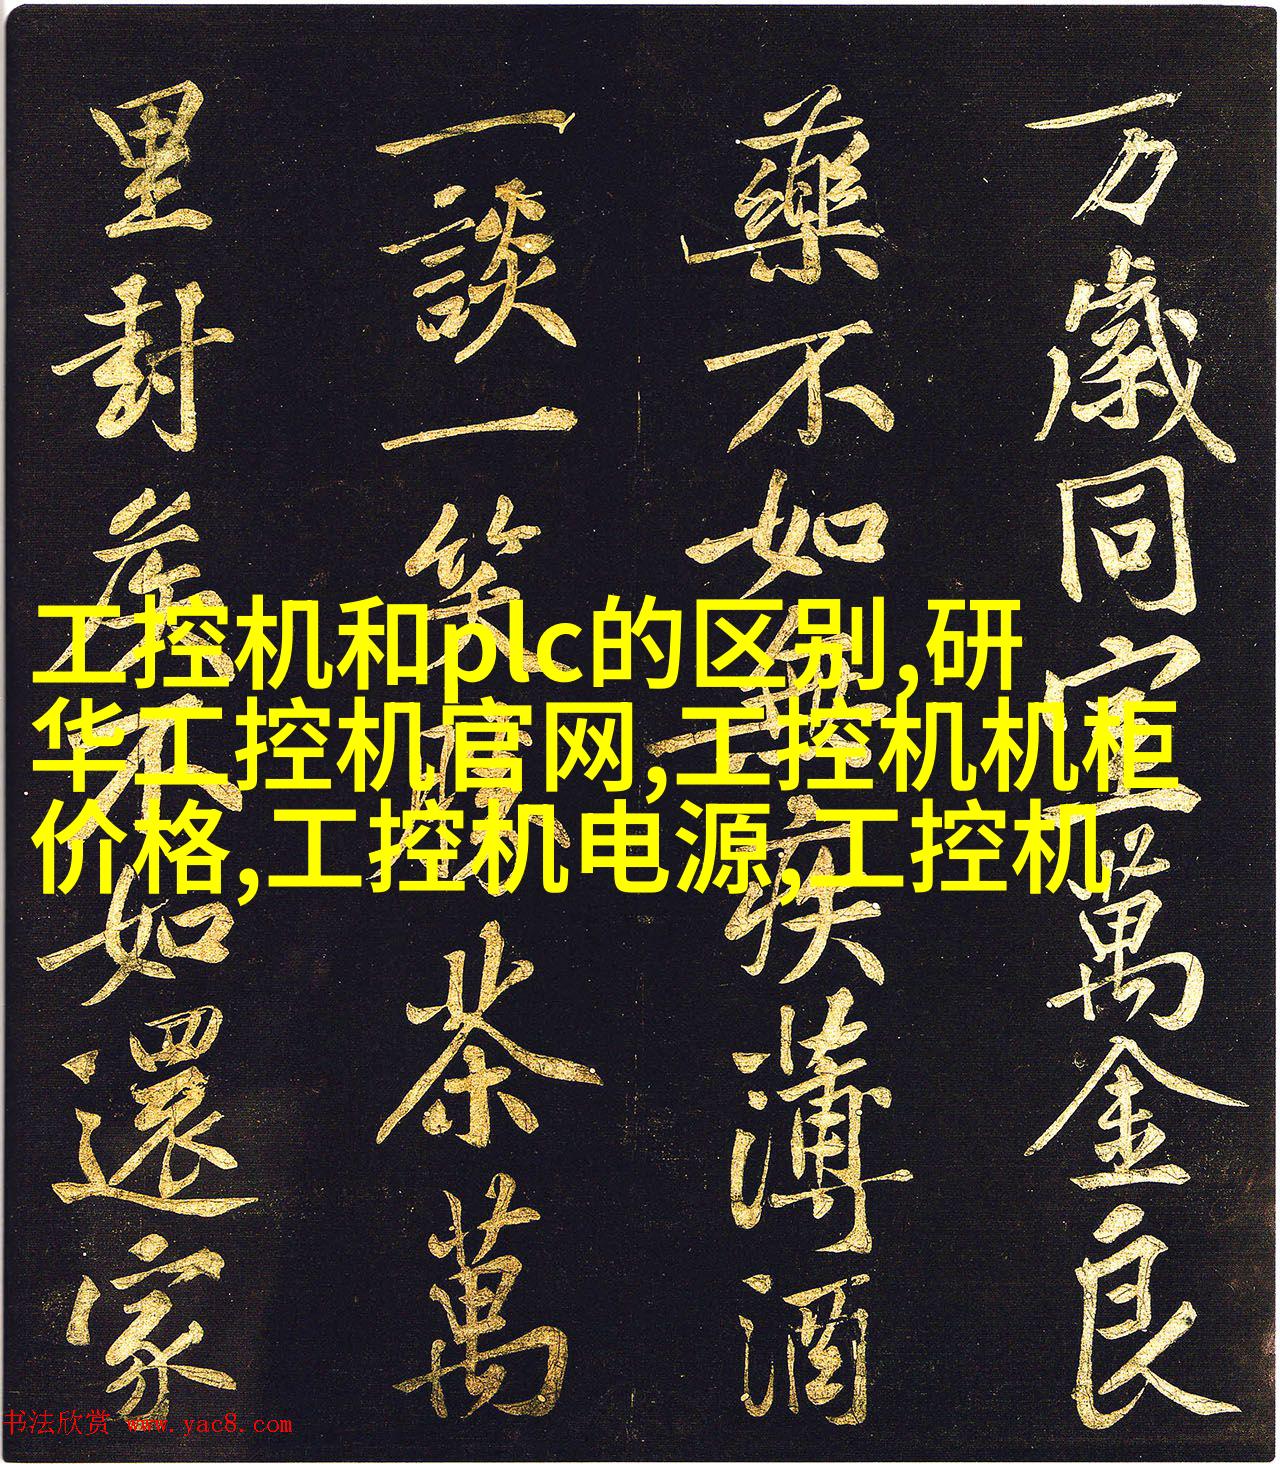 万歳同宜萬金良
藥不如無疾薄酒
一談一笑勝茶萬
里封侯不如還家
工控机和plc的区别,研
华工控机官网,工控机机柜
价格,工控机电源,工控机
书法欣赏 www.yac8.com